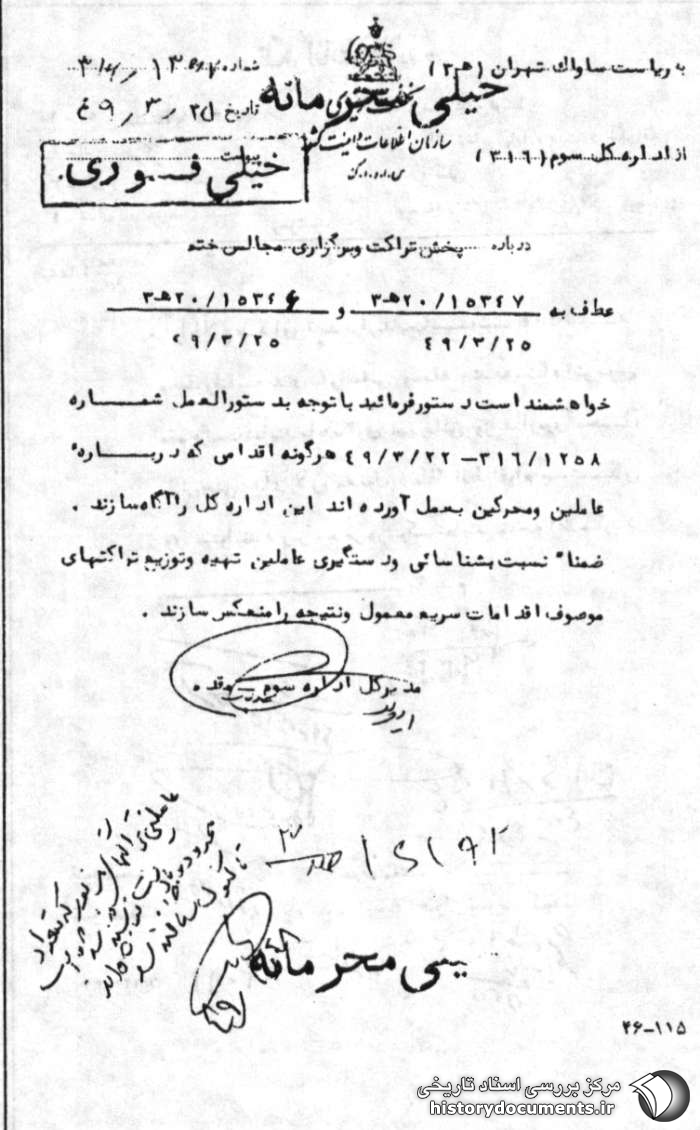 به ریاست ساواک تهران (هـ ۳)
شماره
از اداره کل سوم (۳۱۶)
تاریخ
خیلی محرمانه
سازمان اطلاعات و امنیت کشور
س.ا.و.ا.ک
پیوست
خیلی فوری.
درباره پخش تراکت وبرگزاری مجالس ختم
عطف به ۲۰/۱۵۳۴۷هـ۳ و ۲۰/۱۵۳۴۶هـ۳
۴۹/۳/۲۵ ۴۹/۳/۲۵
خواهشمند است دستورفرمائید باتوجه بدستورالعمل شماره
۳۱۶/۱۲۵۸ – ۴۹/۳/۲۲ هرگونه اقدامی که درباره
عاملین ومحرکین بعمل آورده اند این اداره کل راآگاه سازند .
ضمنا" نسبت بشناسائی ودستگیری عاملین تهیه وتوزیع تراکتهای
موصوف اقدامات سریع معمول ونتیجه رامنعکس سازند .
مدیرکل اداره سوم
خیلی محرمانه
۲۶-۱۱۵
مرکز بررسی اسناد تاریخی
historydocuments.ir